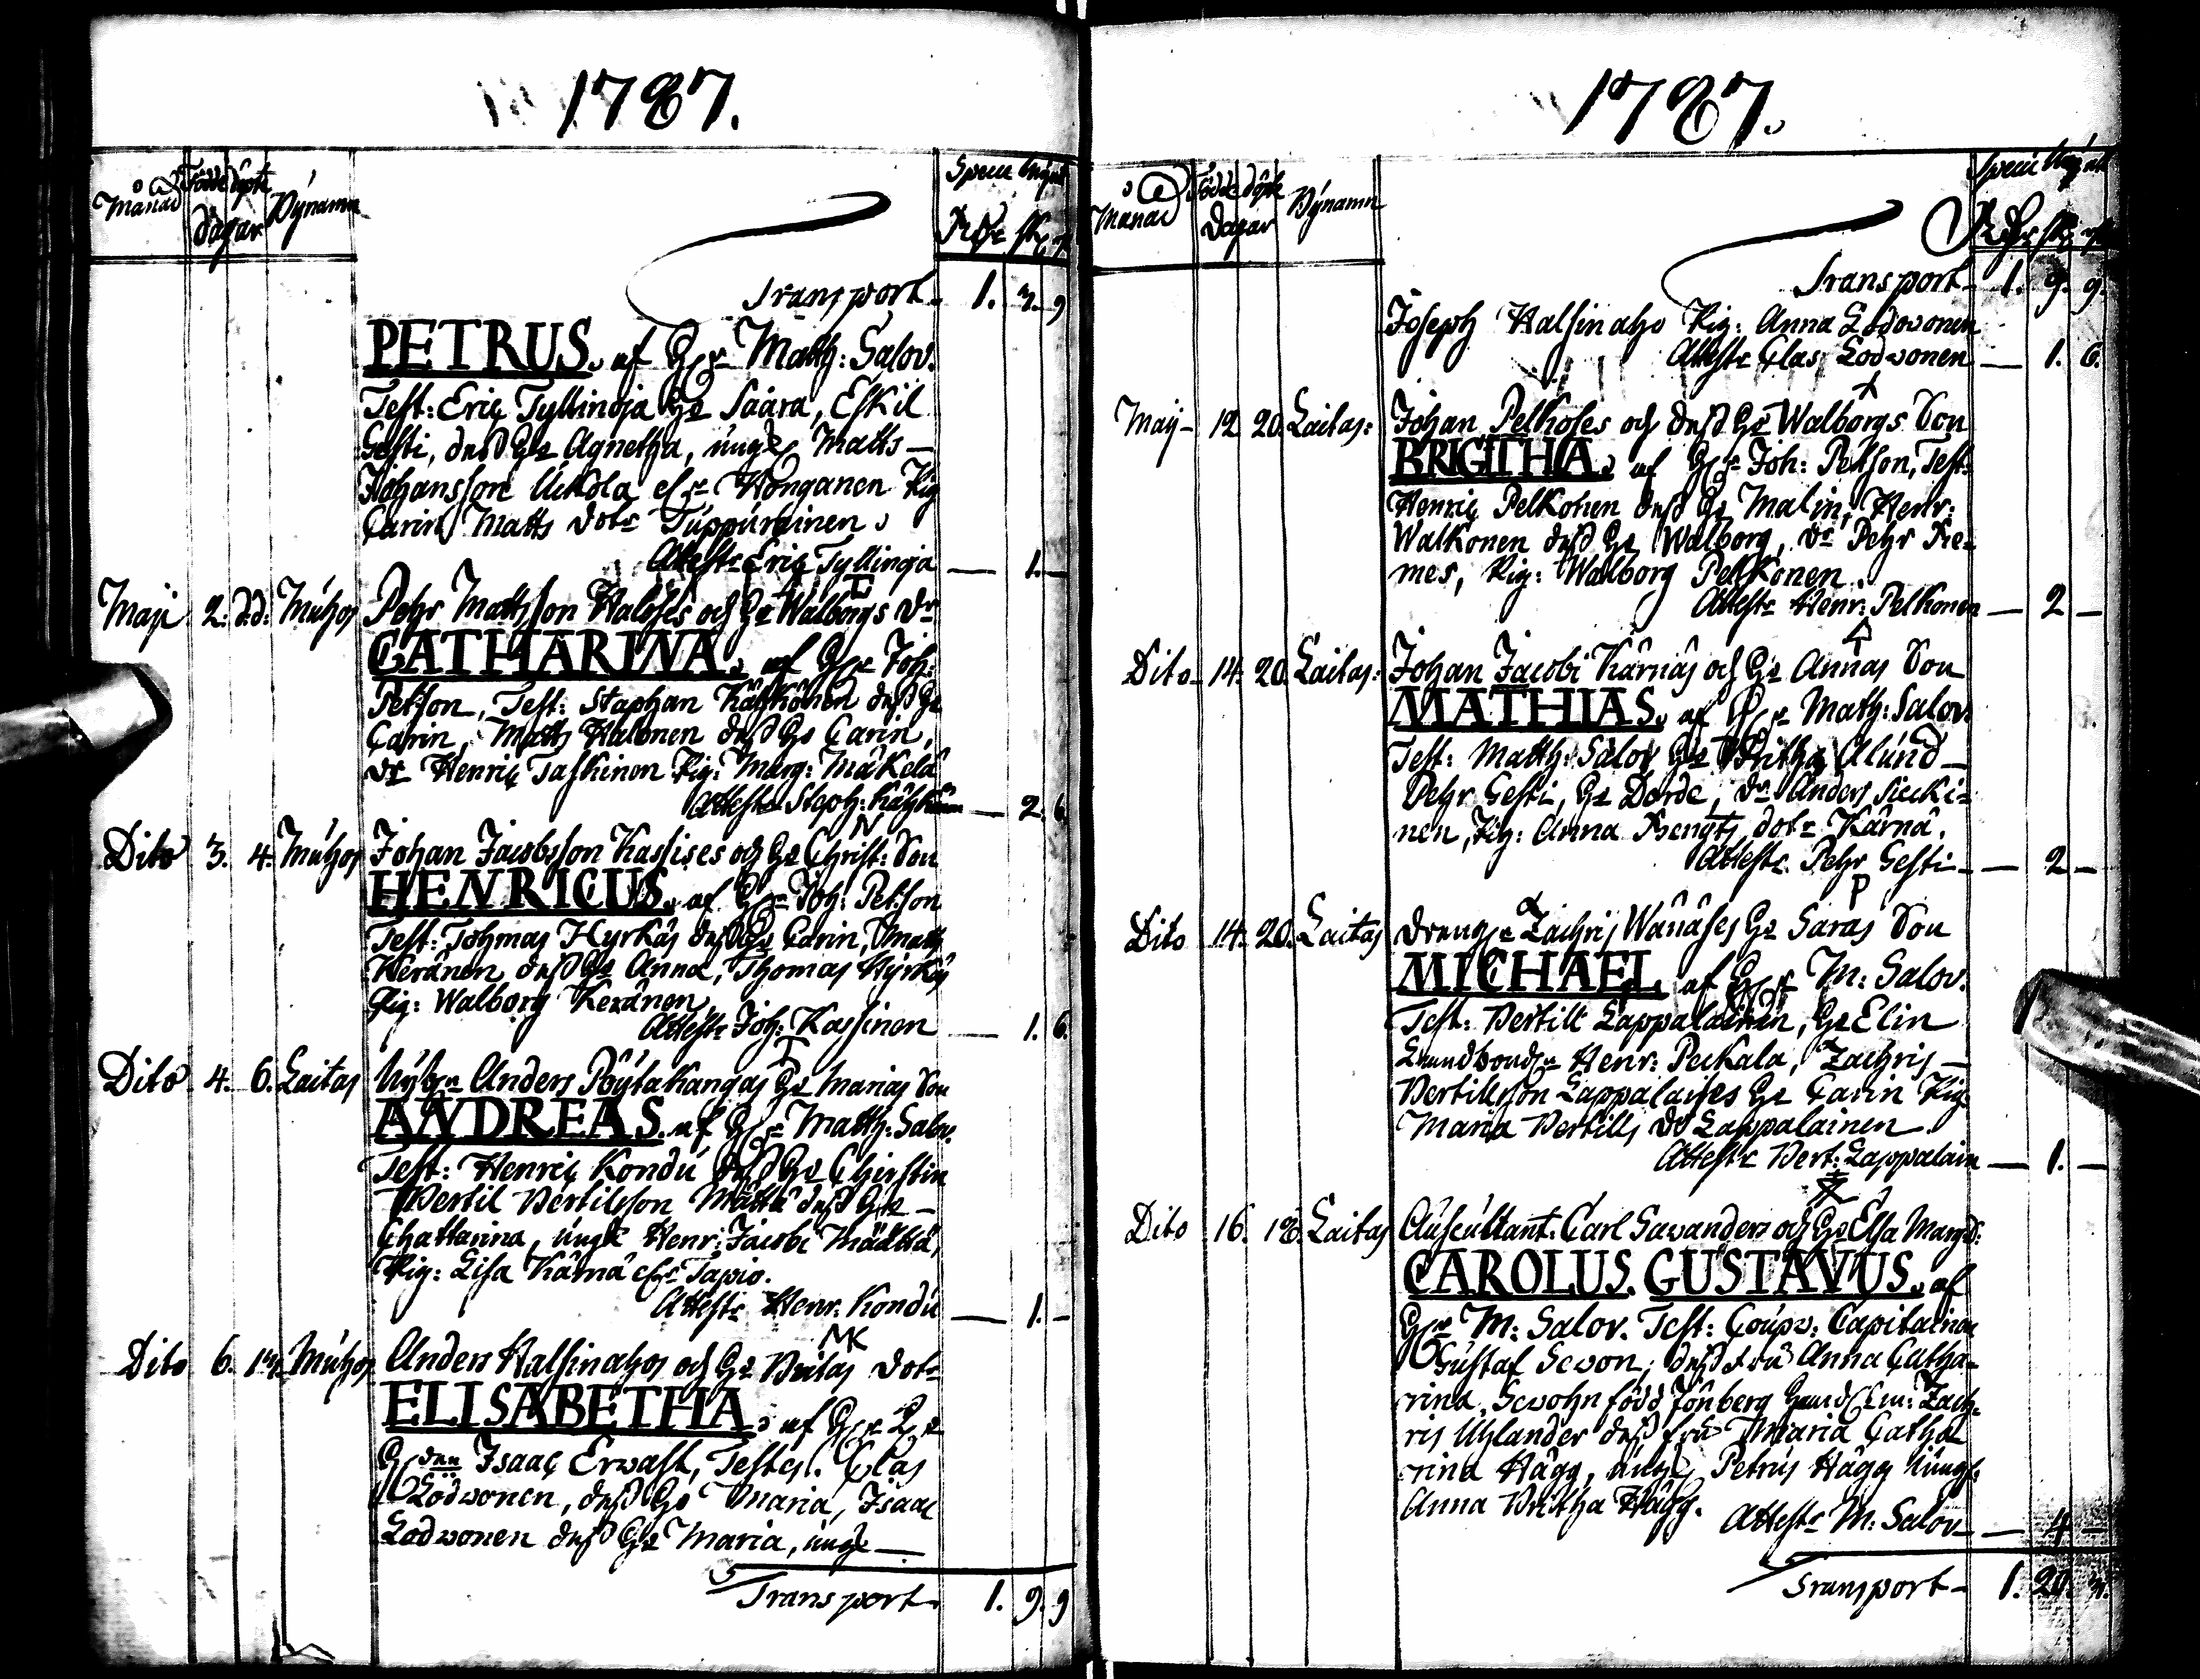 1787.
Månad Födde döpte Bynamn Specie Mynt
dagar Rdr sk. rst.
Transport 1. 3. 9
PETRUS. af Hr Matth: Salov.
Test: Eric Tyllinoja Hu Saara, Eskil
Gesti, dess Hu Agnetha, ungk Matts
Johansson Uckola elr Honganen Pig
Carin Matts dotr Tuppurainen.
Attestr Eric Tyllinoja — 1. —
Maji 2. d:d: Muhos Pehr Mathsson Haloses och Hu Walborgs dr
CATHARINA. af Hr Joh:
Petson, Test: Staphan Käyhkönen dess Hu
Carin, Math Halonen dess Hu Carin,
dr Henric Taskinen Pig: Marg: Mäkelä
Attestr Steph: Käyhkönen — 2. 6.
Dito 3. 4. Muhos Johan Jacobsson Kassises och Hu Christ: Son
HENRICUS. af Hr Joh: Petson
Test: Tohmas Hyrkäs dess Hu Carin, Math
Keränen dess Hu Anna, Thomas Hyrkäs
Pig: Walborg Keränen
Attestr Joh: Kassinen — 1. 6.
Dito 4. 6. Laitas Nybr Anders Pöytäkangas Hu Marias Son
ANDREAS. af Hr Matth: Salov.
Test: Henric Kondu dess Hu Chirstin
Bertil Bertilsson Määttä dess Hu
Chattarina, ungk Henr: Jacobi Määttä,
Pig: Lisa Kärnä elr Tapio.
Attestr Henr. Kondu — 1. —
Dito 6. 13. Muhos Anders Halsinahos och Hu Britas dotr
ELISABETHA. af Hr
Isaac Erwast, Testes. Clas
Lodwonen, dess Hu Maria, Isaac
Lodwonen dess Hu Maria, ungk
Transport 1. 9. 9
1787.
Månad Födde döpte Bynamn Specie Mynt
Dagar Rdr sk. rst.
Transport 1. 9. 9.
Joseph Halsinaho Pig: Anna Lodwonen
Attestr Clas Lodwonen — 1. 6.
Maij 12 20. Laitas: Johan Pelkoses och dess Hu Walborgs Son
BRIGITHA. af Hr Joh: Petson, Test:
Henric Pelkonen dess Hu Malin, Henr:
Walkonen dess Hu Walborg, dr Pehr Re-
mes, Pig: Walborg Pelkonen.
Attestr Henr: Pelkonen — 2 —
Dito 14. 20. Laitas: Johan Jacobi Kärnäs och Hu Annas Son
MATHIAS. af Hr Math: Salov.
Test: Matth: Salov Hu Britha Alund
Pehr Gesti, Hu Dorde, dr Anders
nen, Pig: Anna Bengts dotr Kärnä.
Attestr Pehr Gesti — 2 —
Dito 14. 20. Laitas Zachris Wänäses Hu Saras Son
MICHAEL. af Hr M: Salov.
Test: Bertill Lappalainen, Hu Elin
Henr: Peckala, Zachris
Bertillsson Lappalaises Hu Carin Pig
Maria Bertills dr Lappalainen.
Attestr Bert: Lappalain — 1. —
Dito 16. 18. Laitas Auscultant: Carl Sawanders och Hu Elsa Marg:
CAROLUS. GUSTAVUS. af
Hr M: Salov. Test: Capitainen
Gustaf Sewon, dess fru Anna Catha-
rina Sewohn född Fönberg Zach-
ris Uhlander dess fru Maria Catha
rina Hägg, ungk Petrus Hägg Jungf:
Anna Britha Hägg.
Attestr M: Salov — 4 —
Transport 1. 20. 3.